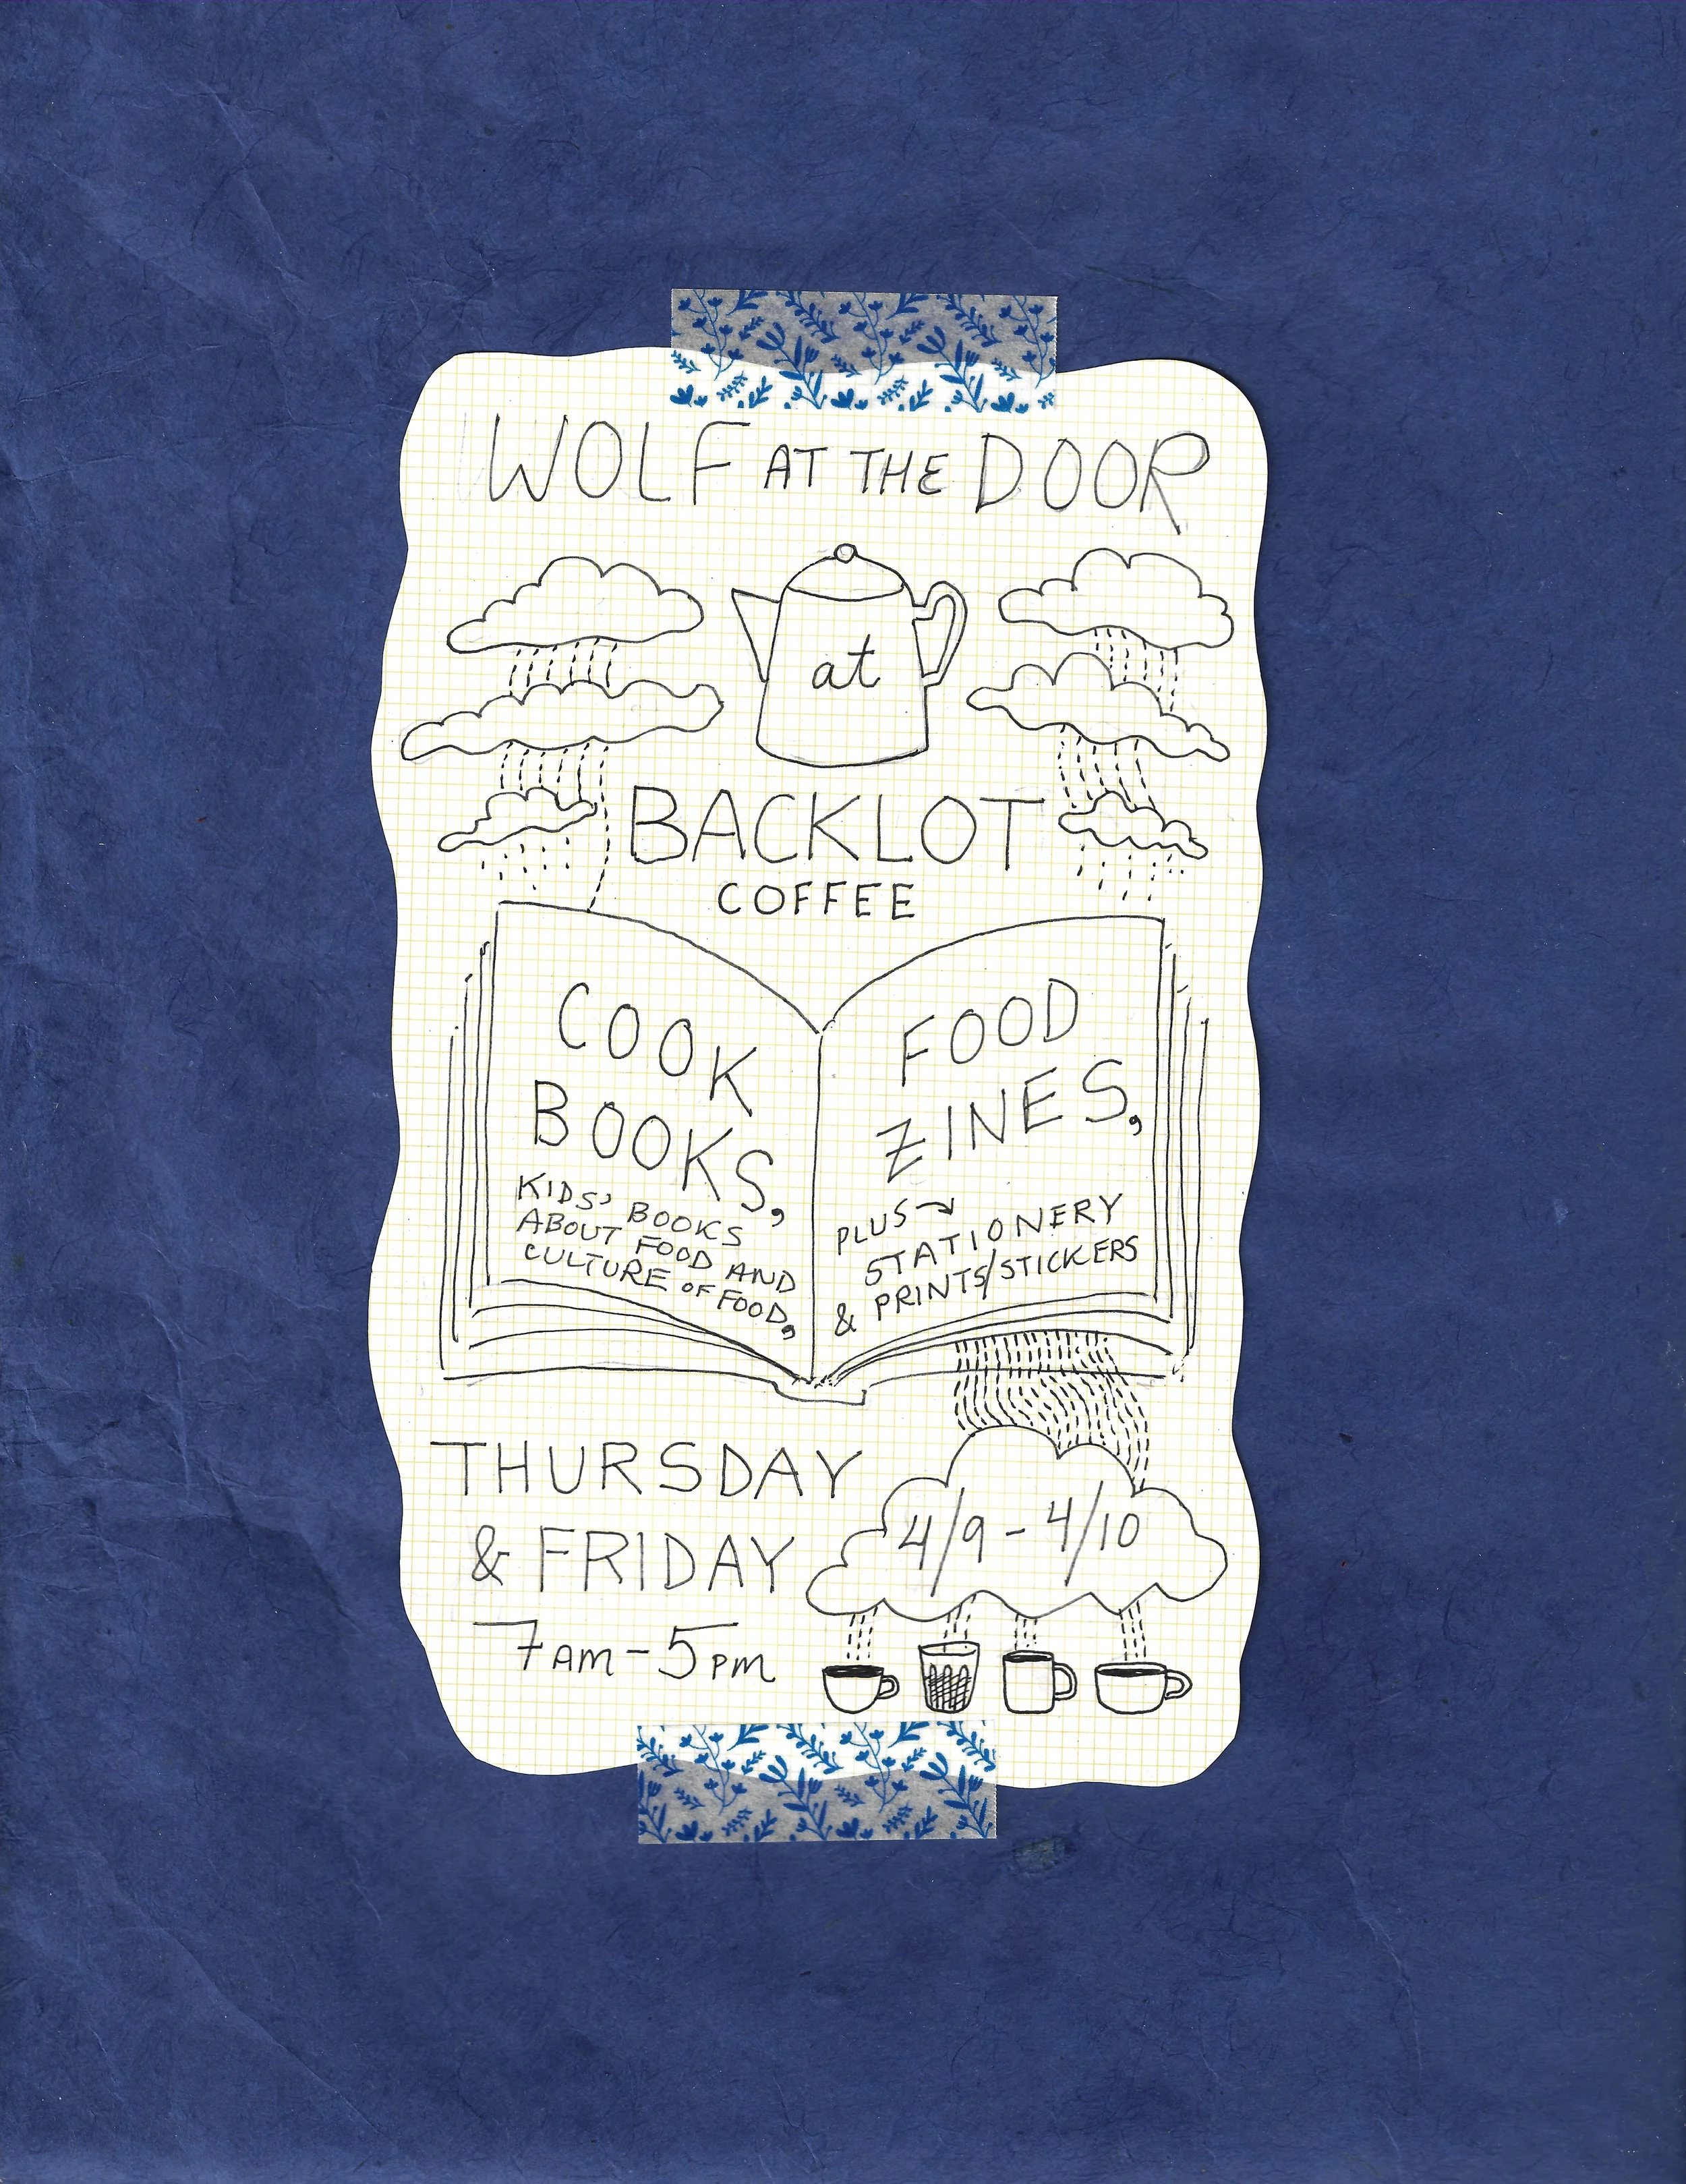 WOLF AT THE DOOR
at
BACKLOT
COFFEE
COOK
BOOKS,
KIDS' BOOKS
ABOUT FOOD AND
CULTURE OF FOOD,
FOOD
ZINES,
PLUS →
STATIONERY
& PRINTS/STICKERS
THURSDAY
& FRIDAY
7AM-5PM
4/9-4/10